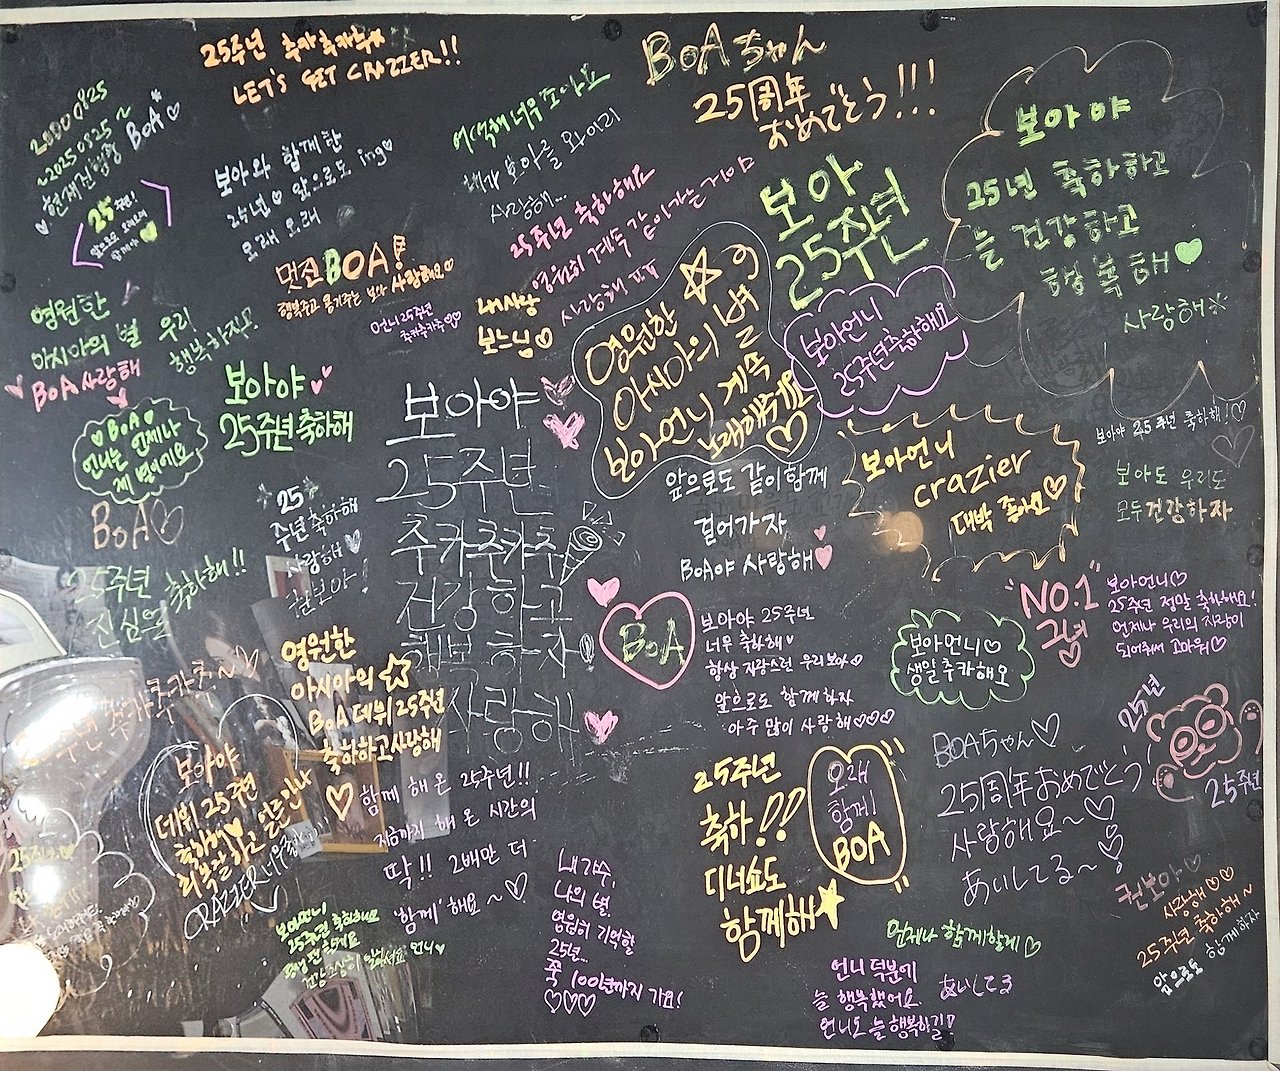 25주년 축카축카축카
LET'S GET CRAZIER!!
20000825
~20250825~
현재진행중 BoA♡
25주년!
앞으로도 오래오래
함께해
보아와 함께한
25년♡ 앞으로도 ing♡
오래 오래
어색해 너무 좋아요
내가 보아를 와이리
사랑해...
BOAちゃん
25周年
おめでとう!!!
보아야
25년 축하하고
늘 건강하고
행복해♥
사랑해
25주년 축하해요
영원히 계속 같이가는거야
사랑해 ㅠㅠ
보아
25주년
멋진 BOA!
행복주고 용기주는 보아 사랑해요♡
언니 25주년
추카추카추♡♡
내사랑
보느님♡
영원한
아시아의 별 우리
행복하자!
BoA 사랑해
♥BoA♥
언니는 언제나
제 별이에요
보아야
25주년축하해
영원한 ☆
아시아의 별
보아언니 계속
노래해주세요
♡
보아언니
25주년축하해요
보아야
25주년
추카추카추
건강하고
행복하자!
사랑해
앞으로도 같이함께
걸어가자
BOA야 사랑해♥
보아언니
crazier
대박 좋아요♡
보아야 25주년 축하해!♡
보아도 우리도
모두건강하자
BoA♡
25주년 축하해!!
진심을
25
주년축하해
사랑해♡
권보아!
BoA
보아야 25주년
너무 축하해♥
항상 자랑스런 우리보아♡
앞으로도 함께하자
아주 많이 사랑해♡♡♡
보아언니♡
생일추카해요
"NO.1"
그녀
보아언니♡
25주년 정말 축하해요!
언제나 우리의 자랑이
되어줘서 고마워♡
영원한
아시아의 ☆
BOA 데뷔 25주년
축하하고사랑해
♡
보아야
데뷔 25주년
축하해♥
CRAZIER
함께 해 온 25주년!!
지금까지 해 온 시간의
딱!! 2배만 더
'함께' 해요~♡
25주년
축하!!
디너쇼도
함께해★
오래
함께
BOA
BOAちゃん♡
25周年おめでとう
사랑해요~♡
あいしてる~♡
25년
25주년
보아언니
25주년 축하해요
내 가수,
나의 별
영원히 기억할
25년...
쭉 100년까지 가요!
♡♡♡
언제나 함께할게♡
언니 덕분에
늘 행복했어요 あいしてる
언니도 늘 행복하길!
권보아♡
사랑해♡♡
25주년 축하해~
앞으로도 함께하자